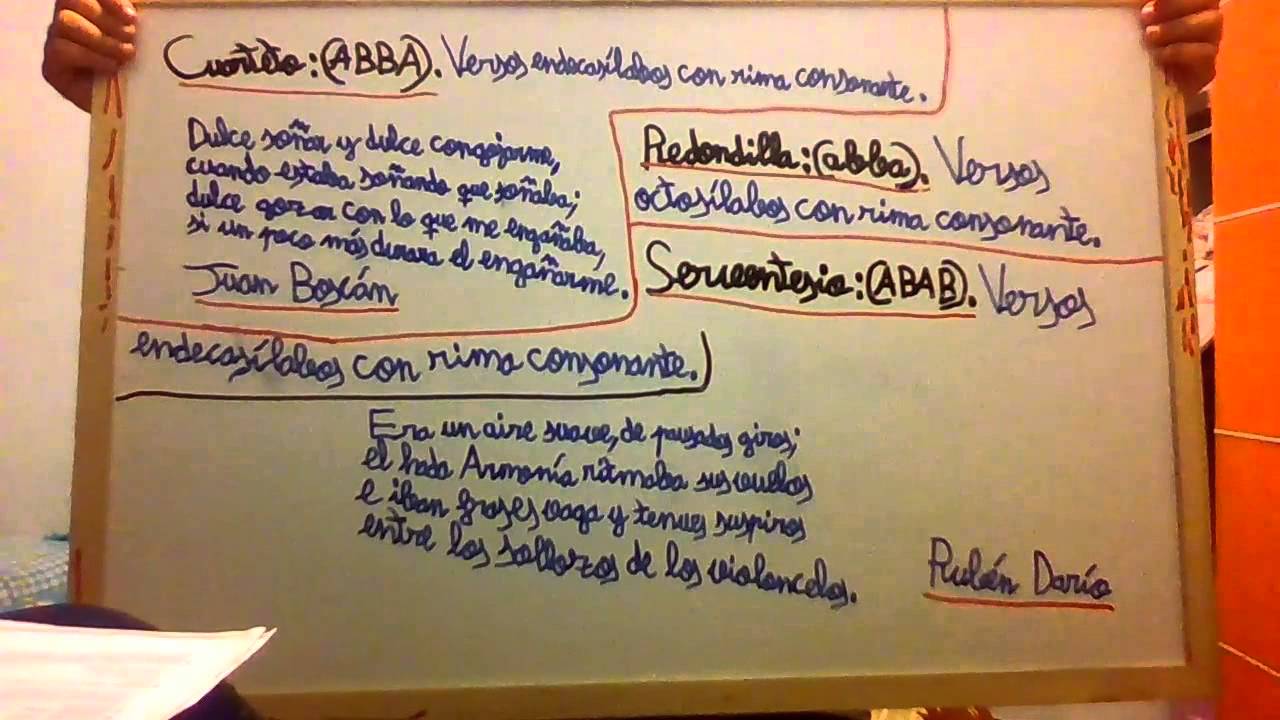 Cuarteto: (ABBA). Versos endecasílabos con rima consonante.
Dulce soñar y dulce congojarme,
cuando estaba soñando que soñaba;
dulce gozar con lo que me engañaba,
si un poco más durara el engañarme.
Juan Boscán
Redondilla: (abba). Versos
octosílabos con rima consonante.
Serventesio: (ABAB). Versos
endecasílabos con rima consonante.
Era un aire suave, de pausados giros;
el hada Armonía ritmaba sus vuelos
e iban frases vaga y tenues suspiros
entre los sollozos de los violoncelos.
Rubén Darío